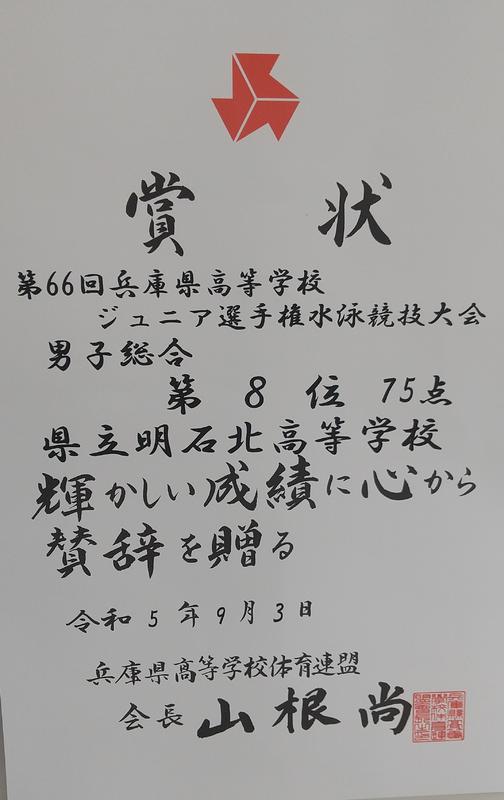 賞状
第66回兵庫県高等学校
ジュニア選手権水泳競技大会
男子総合
第 8 位 75点
県立明石北高等学校
輝かしい成績に心から
賛辞を贈る
令和5年9月3日
兵庫県高等学校体育連盟
会長 山根尚